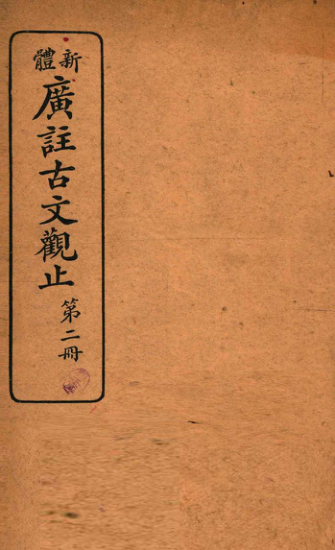 新體
廣註古文觀止
第二冊